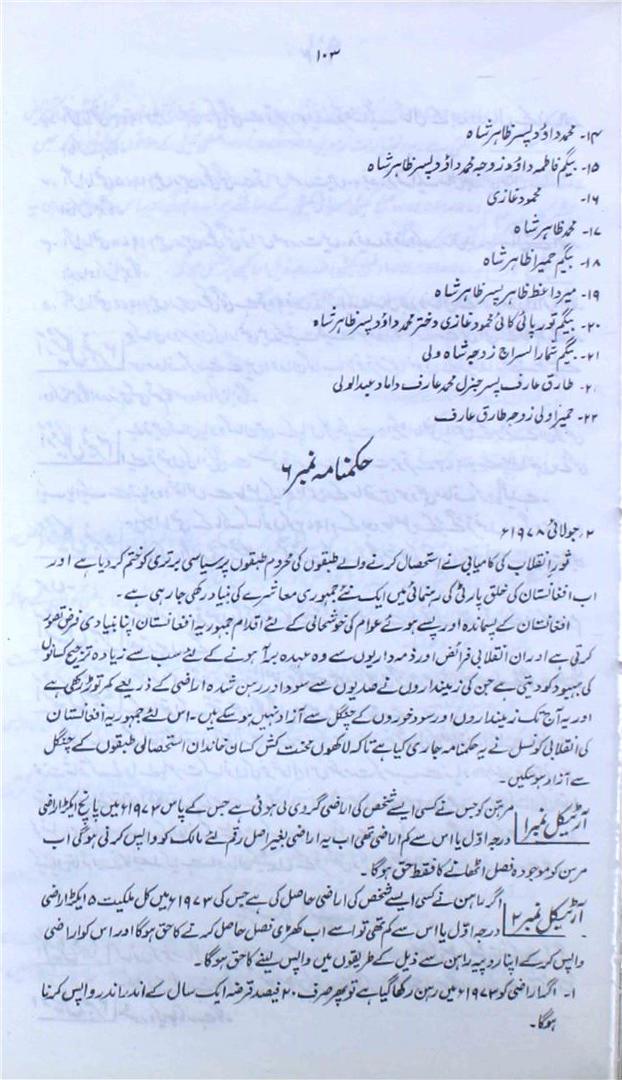 ۱۰۳
۱۴۔ محمد داؤد پسر ظاہر شاہ
۱۵۔ بیگم فاطمہ داؤد زوجہ محمد داؤد پسر ظاہر شاہ
۱۶۔ محمود غازی
۱۷۔ محمد ظاہر شاہ
۱۸۔ بیگم حمیرا ظاہر شاہ
۱۹۔ میر واعظ ظاہر پسر ظاہر شاہ
۲۰۔ بیگم تورپائی کائی محمود غازی دختر محمد داؤد پسر ظاہر شاہ
۲۱۔ بیگم شمار السراج زوجہ شاہ ولی
۲۔ طارق عارف پسر جنرل محمد عارف داماد عبدالولی
۲۲۔ حمیرا ولی زوجہ طارق عارف
حکمنامہ نمبر ۶
۲؍ جولائی ۱۹۷۸ء
ثور انقلاب کی کامیابی نے استحصال کرنے والے طبقوں کی محروم طبقوں پر سیاسی برتری کو ختم کر دیا ہے اور
اب افغانستان کی خلق پارٹی کی رہنمائی میں ایک نئے جمہوری معاشرے کی بنیاد رکھی جا رہی ہے۔
افغانستان کے پسماندہ اور پسے ہوئے عوام کی خوشحالی کے لئے اقدام جمہوریہ افغانستان اپنا بنیادی فرض تصور
کرتی ہے اور ان انقلابی فرائض اور ذمہ داریوں سے وہ عہدہ برآ ہونے کے لئے سب سے زیادہ ترجیح کسانوں
کی بہبود کو دیتی ہے جن کی زمینداروں نے صدیوں سے سود اور رہن شدہ اراضی کے ذریعے کمر توڑ رکھی ہے
اور یہ آج تک زمینداروں اور سود خوروں کے چنگل سے آزاد نہیں ہو سکیں۔ اس لئے جمہوریہ افغانستان
کی انقلابی کونسل نے یہ حکمنامہ جاری کیا ہے تاکہ لاکھوں محنت کش کسان خاندان استحصالی طبقوں کے چنگل
سے آزاد ہو سکیں۔
آرٹیکل نمبر ۱ مرتہن کو جس نے کسی ایسے شخص کی اراضی گردی لی ہوئی ہے جس کے پاس ۱۹۷۳ء میں پانچ ایکڑ اراضی
درجہ اوّل یا اس سے کم اراضی تھی اب یہ اراضی بغیر اصل رقم لئے مالک کو واپس کرنی ہوگی اب
مرہن کو موجودہ فصل اٹھانے کا فقط حق ہوگا۔
آرٹیکل نمبر ۲ اگر راہن نے کسی ایسے شخص کی اراضی حاصل کی ہے جس کی ۱۹۷۳ء میں کل ملکیت ۵ ایکڑ اراضی
درجہ اوّل یا اس سے کم تھی تو اسے اب کھڑی فصل حاصل کرنے کا حق ہوگا اور اس کو اراضی
واپس کر کے اپنا روپیہ راہن سے ذیل کے طریقوں میں واپس لینے کا حق ہوگا۔
۱۔ اگر اراضی کو ۱۹۷۳ء میں رہن رکھا گیا ہے تو پھر صرف ۲۰ فیصد قرضہ ایک سال کے اندر اندر واپس کرنا
ہوگا۔